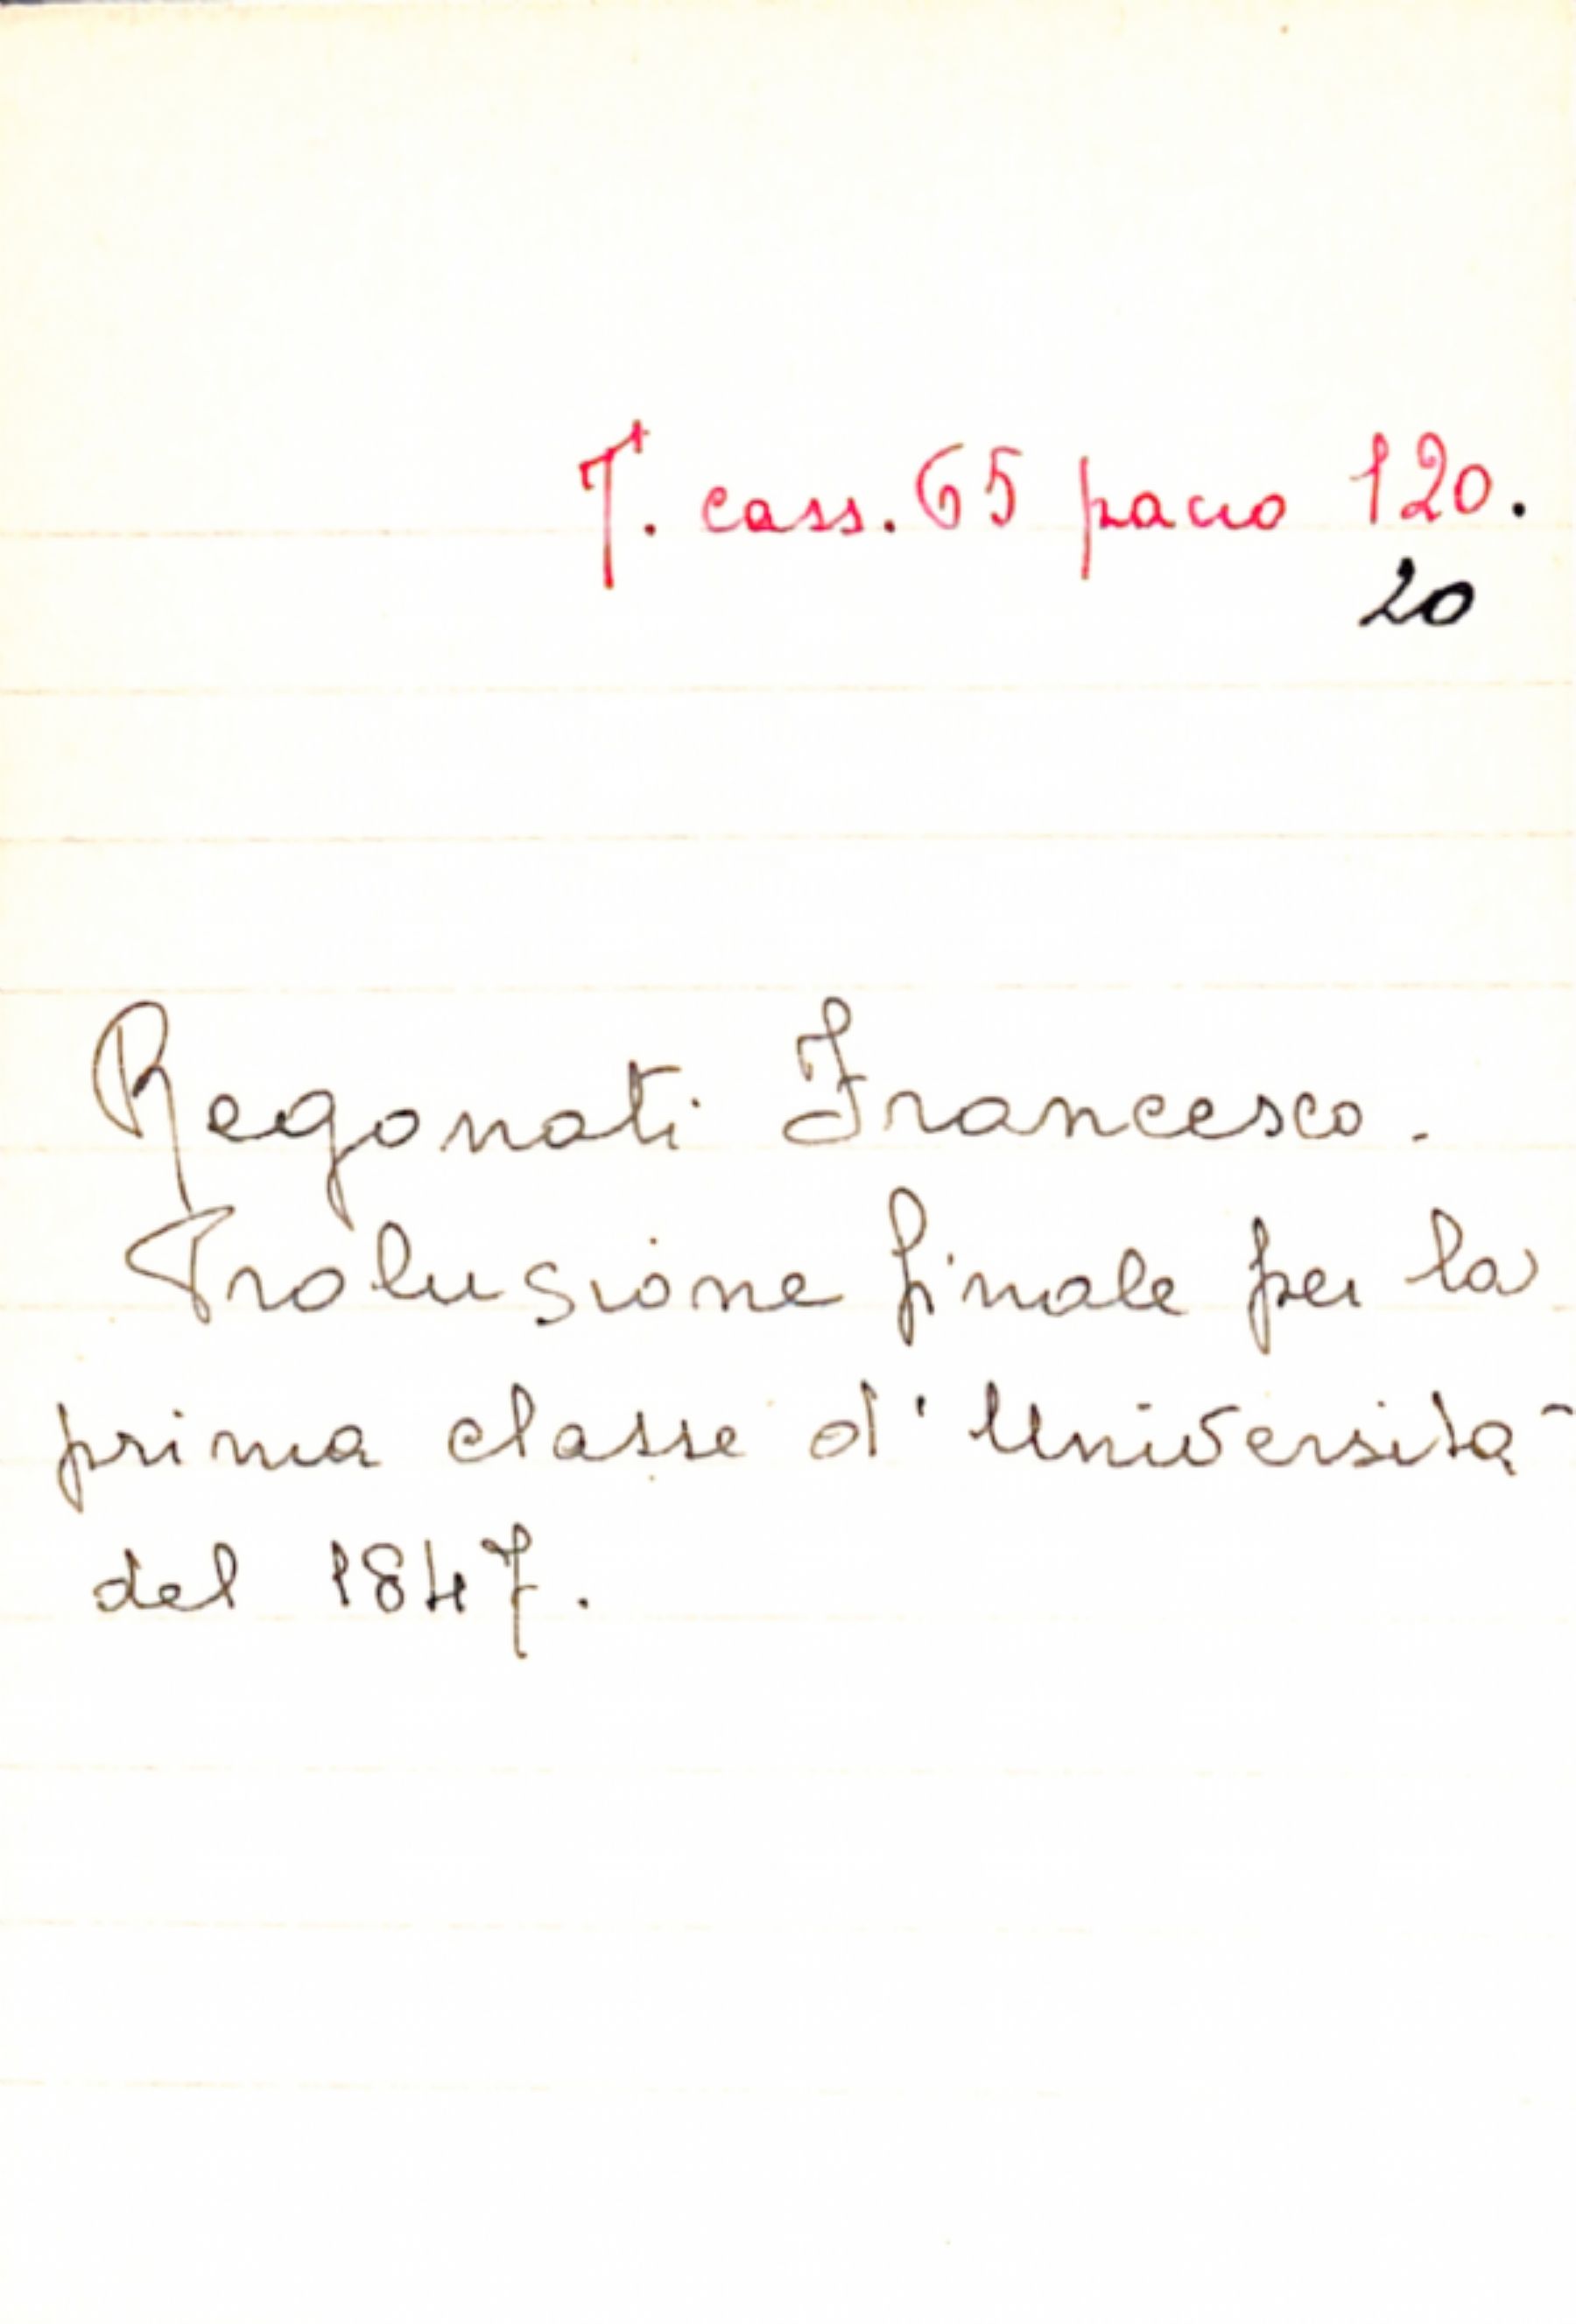 T. cass. 65 pacco 120.
20
Regonati Francesco.
Prolusione finale per la
prima classe d'Università
del 1847.